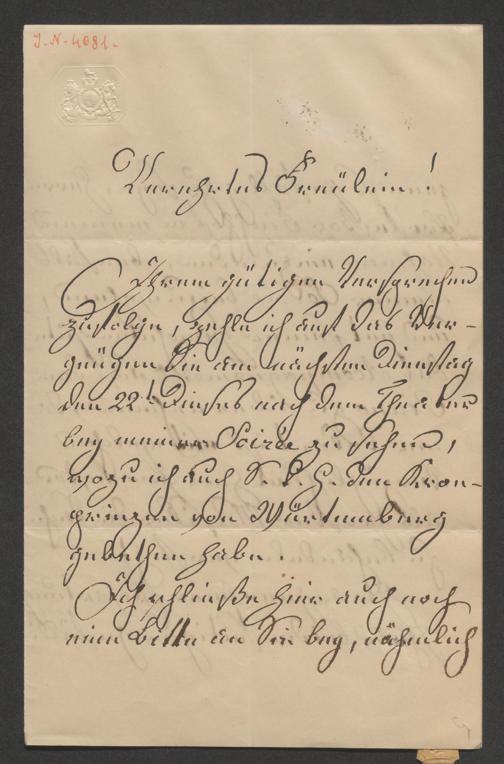 J.-N.-4081.-
Verehrtes Fräulein!
Ihrem gütigen Versprechen
zufolge, zehle ich auf das Ver-
gnügen Sie am nächsten Dienstag
den 22t Dieses nach dem Theater
bey meiner Soirée zu sehen,
wozu ich auch S. K. H. den Kron-
prinzen von Würtemburg
gebethen habe.
Ich schließe hier auch noch
eine Bitte an Sie bey, nähmlich